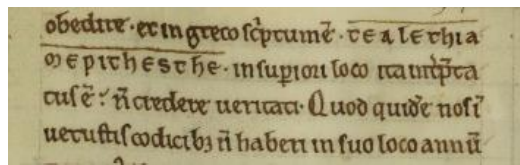 obedire · et in greco sc̄ptum ē · TEALETHIA
MEPITHESTHE · in suꝑiori loco ita int̄p̄ta
tus ē · n̄ credere ueritati · Quod quidē nos ī
uetustis codicibꝫ n̄ haberi in suo loco annū